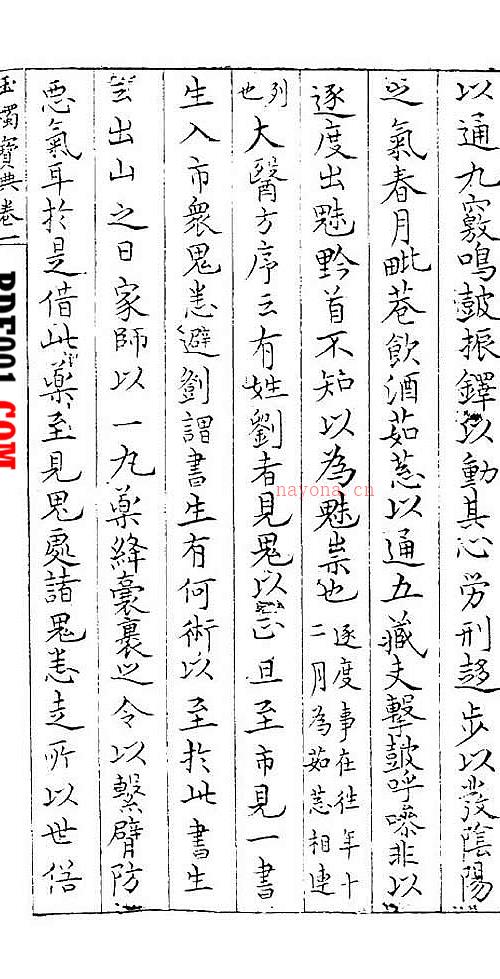 以通九竅鳴鼓振鐸以動其心勞刑趍步以發陰陽
之氣春月毗巷飲酒茹葱以通五藏夫擊鼓呼噪非以
逐度出魅黔首不知以為魅祟也逐度事在往年十
二月為茹葱相連
列
也大醫方序云有姓劉者見鬼以正旦至市見一書
生入市衆鬼悉避劉謂書生有何術以至於此書生
云出山之日家師以一丸藥絳囊裹之令以繫臂防
悪氣耳於是借此藥至見鬼處諸鬼悉走所以世俗
玉燭寶典卷一
PDF001.COM
nayona.cn